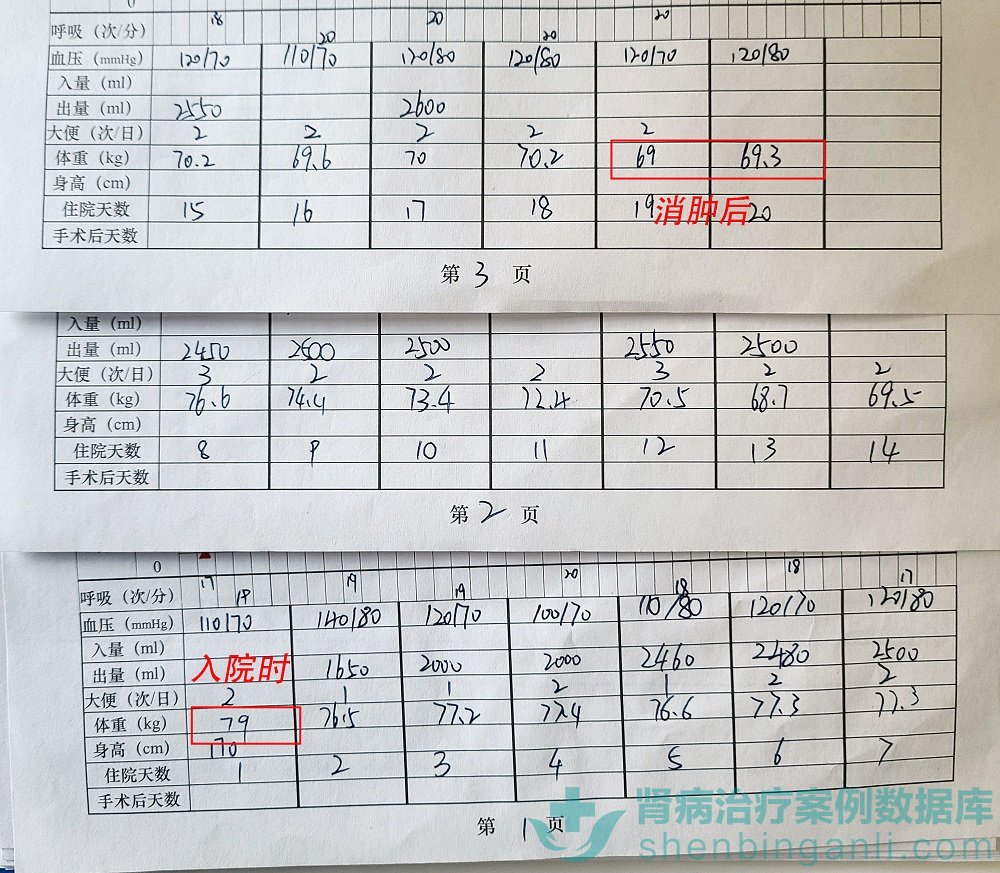 0
呼吸（次/分） 18 20 20 20 20
血压（mmHg） 120/70 110/70 120/80 120/80 120/70 120/80
入量（ml）
出量（ml） 2550 2600
大便（次/日） 2 2 2 2 2
体重（kg） 70.2 69.6 70 70.2 69 69.3
身高（cm）
住院天数 15 16 17 18 19 消肿后 20
手术后天数
第 3 页
入量（ml）
出量（ml） 2450 2500 2500 2550 2500
大便（次/日） 3 2 2 2 3 2 2
体重（kg） 76.6 74.4 73.4 72.4 70.5 68.7 69.5
身高（cm）
住院天数 8 9 10 11 12 13 14
手术后天数
第 2 页
0
呼吸（次/分） 17 18 19 19 20 18 18 17
血压（mmHg） 110/70 140/80 120/70 100/70 110/80 120/70 120/80
入量（ml）
出量（ml） 入院时 1650 2000 2000 2460 2480 2500
大便（次/日） 2 1 1 2 1 2 2
体重（kg） 79 76.5 77.2 77.4 76.6 77.3 77.3
身高（cm） 170
住院天数 1 2 3 4 5 6 7
手术后天数
第 1 页
肾病治疗案例数据库
shenbinganli.com